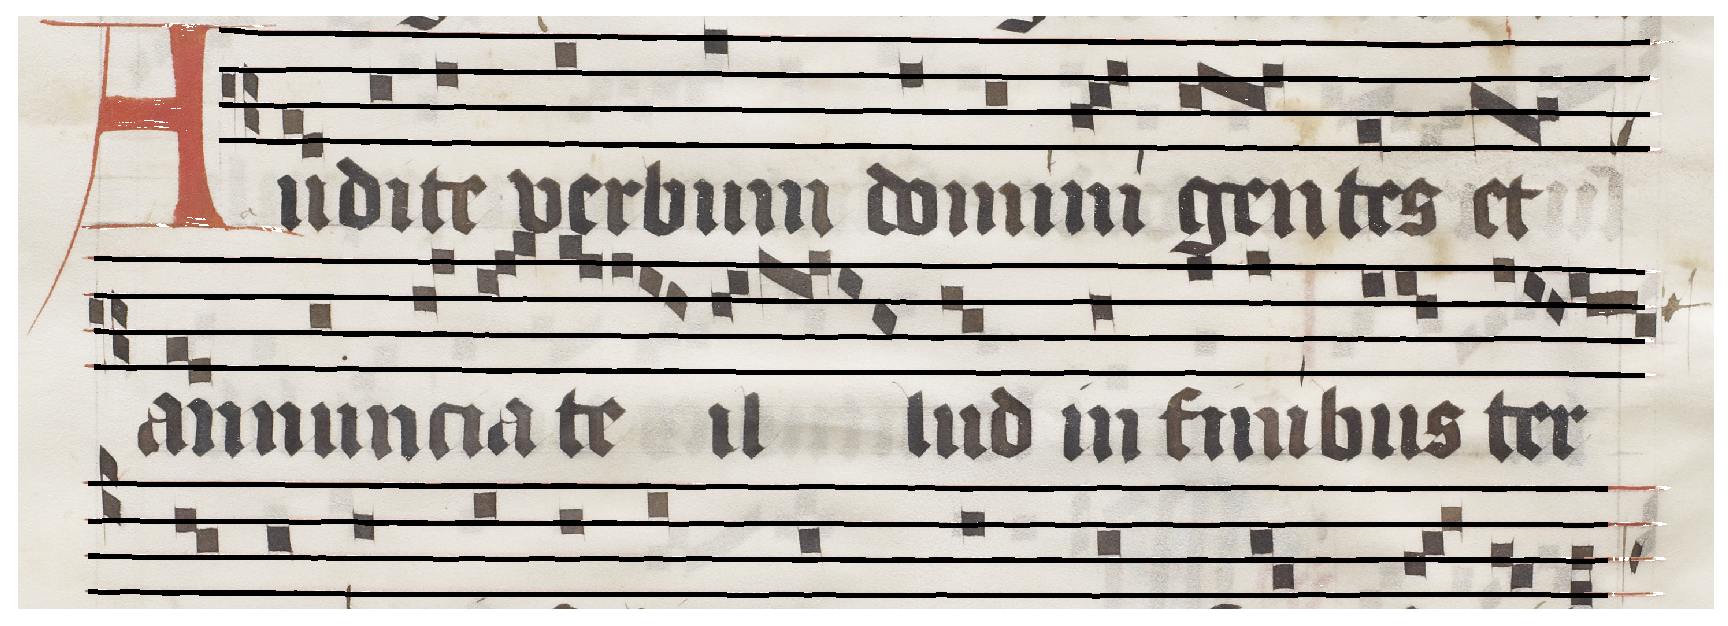 Audite verbum domini gentes et
annuncia te il lud in finibus ter